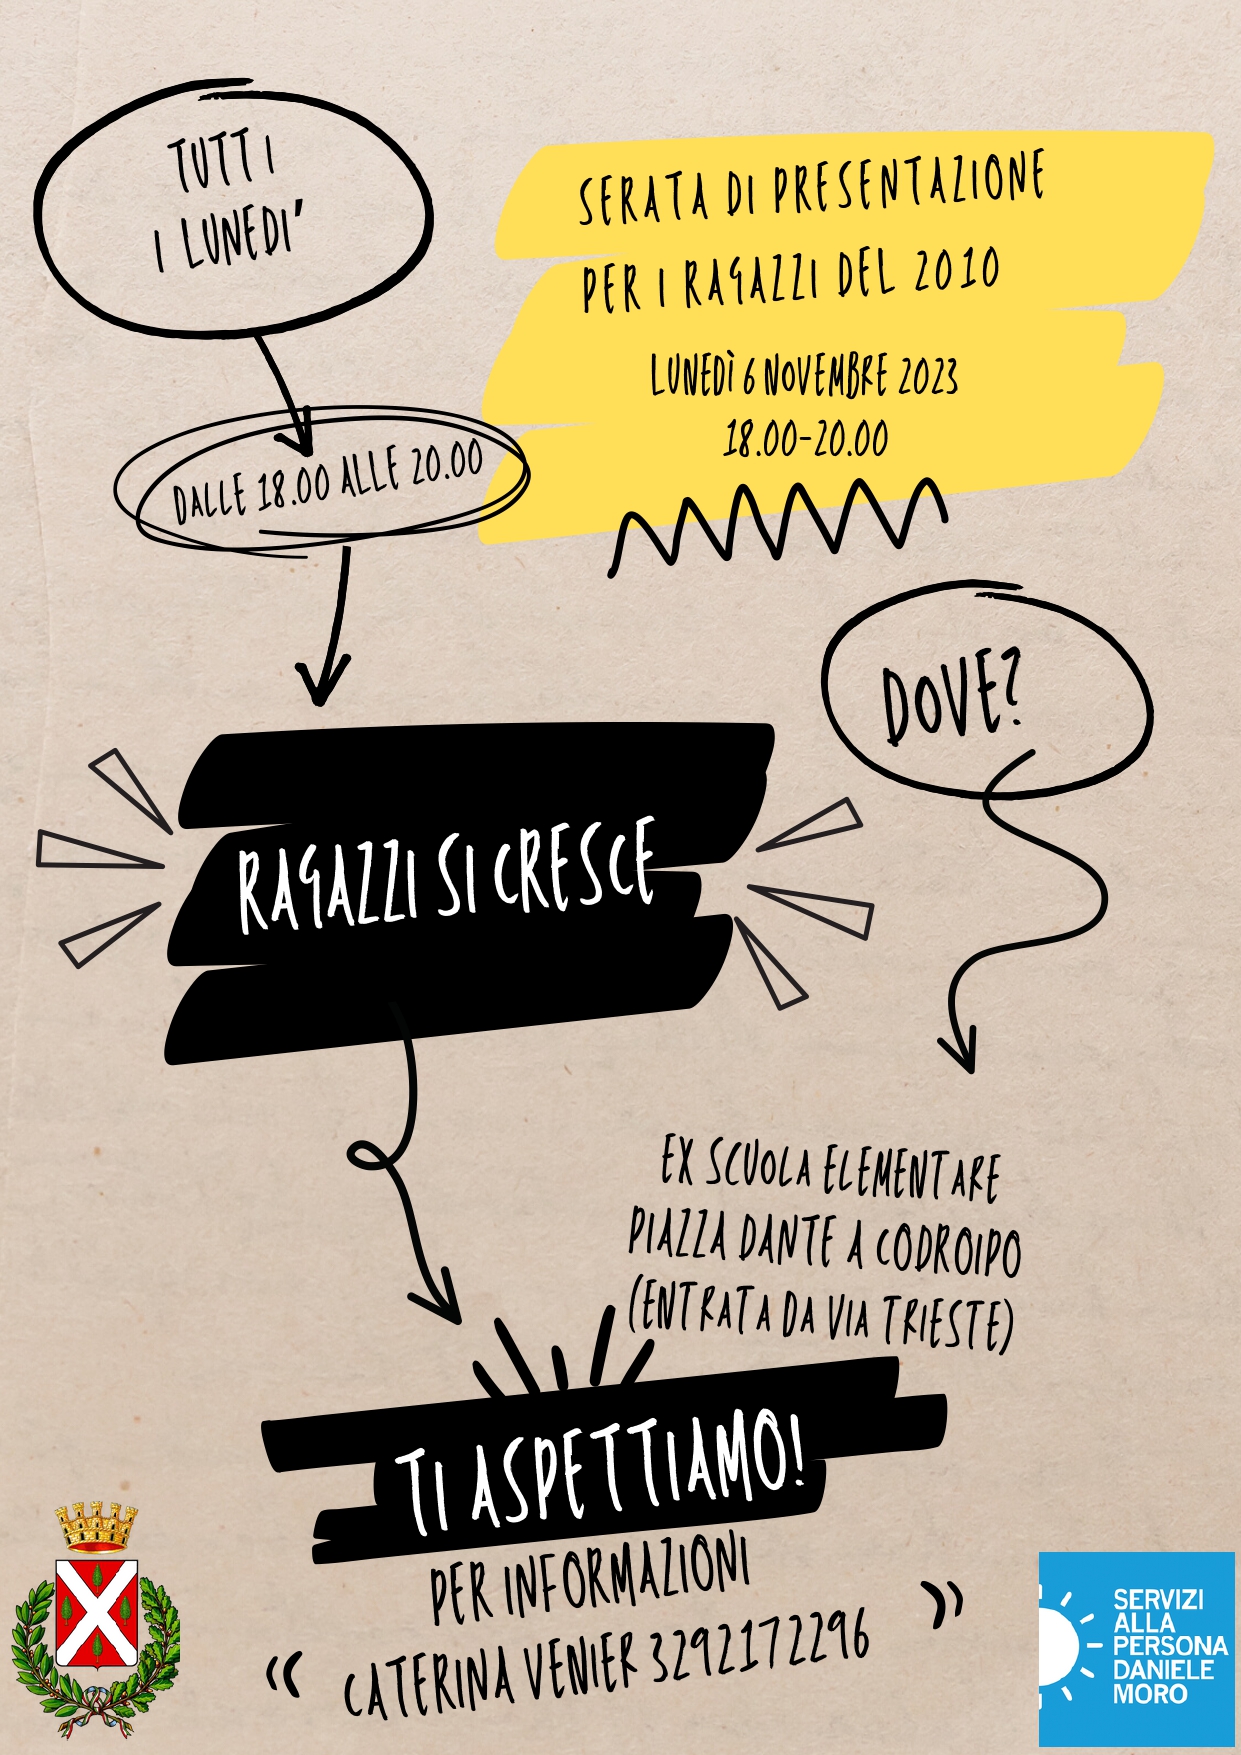 TUTTI I
I LUNEDI'
DALLE 18.00 ALLE 20.00
SERATA DI PRESENTAZIONE
PER I RAGAZZI DEL 2010
LUNEDÌ 6 NOVEMBRE 2023
18.00-20.00
RAGAZZI SI CRESCE
DOVE?
EX SCUOLA ELEMENTARE
PIAZZA DANTE A CODROIPO
(ENTRATA DA VIA TRIESTE)
TI ASPETTIAMO!
PER INFORMAZIONI
“ CATERINA VENIER 3292172296 ”
SERVIZI
ALLA
PERSONA
DANIELE
MORO